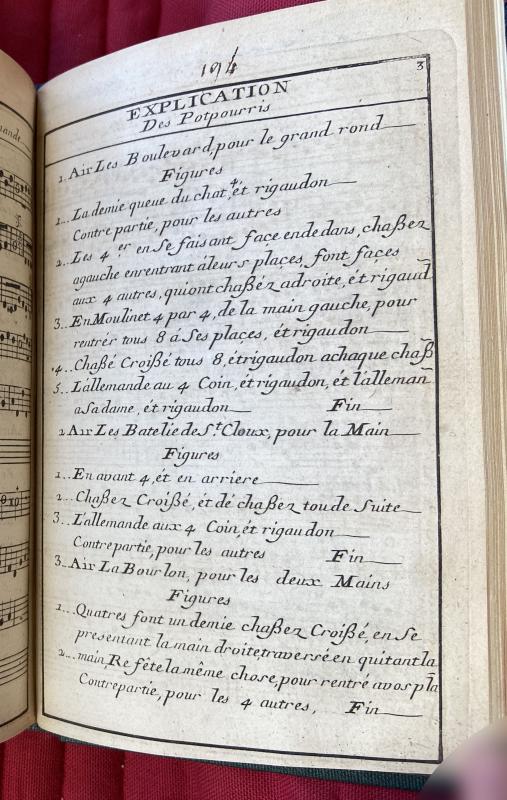 194
3
EXPLICATION
Des Potpourris
1. Air Les Boulevard, pour le grand rond
Figures
1... La demie queue du chat 4, ét rigaudon
Contre partie, pour les autres
2... Les 4 er en Se faisant face endedans, chaßez
agauche enrentrant áleurs places, font faces
aux 4 autres, quiont chaßéz adroite, ét rigaud
3.. En Moulinet 4 par 4, de la main gauche, pour
rentrér tous 8 á Ses places, ét rigaudon
4.. Chaßé Croißé tous 8, ét rigaudon achaque chaß
5.. L'allemande au 4 Coin, ét rigaudon, ét l'alleman
asa dame, ét rigaudon Fin
2 Air Les Batelie de St. Cloux, pour la Main
Figures
1... En avant 4, ét en arriere
2... Chaßez Croißé, ét dé chaßez tou de Suite
3... L'allemande aux 4 Coin, ét rigaudon
Contrepartie, pour les autres Fin
3.. Air La Bourlon, pour les deux Mains
Figures
1... Quatres font un demie chaßez Croißé, en Se
presentant la main droite, traversé en quitant la
2... main, Re féte la même chose, pour rentré avos pla
Contrepartie, pour les 4 autres, Fin